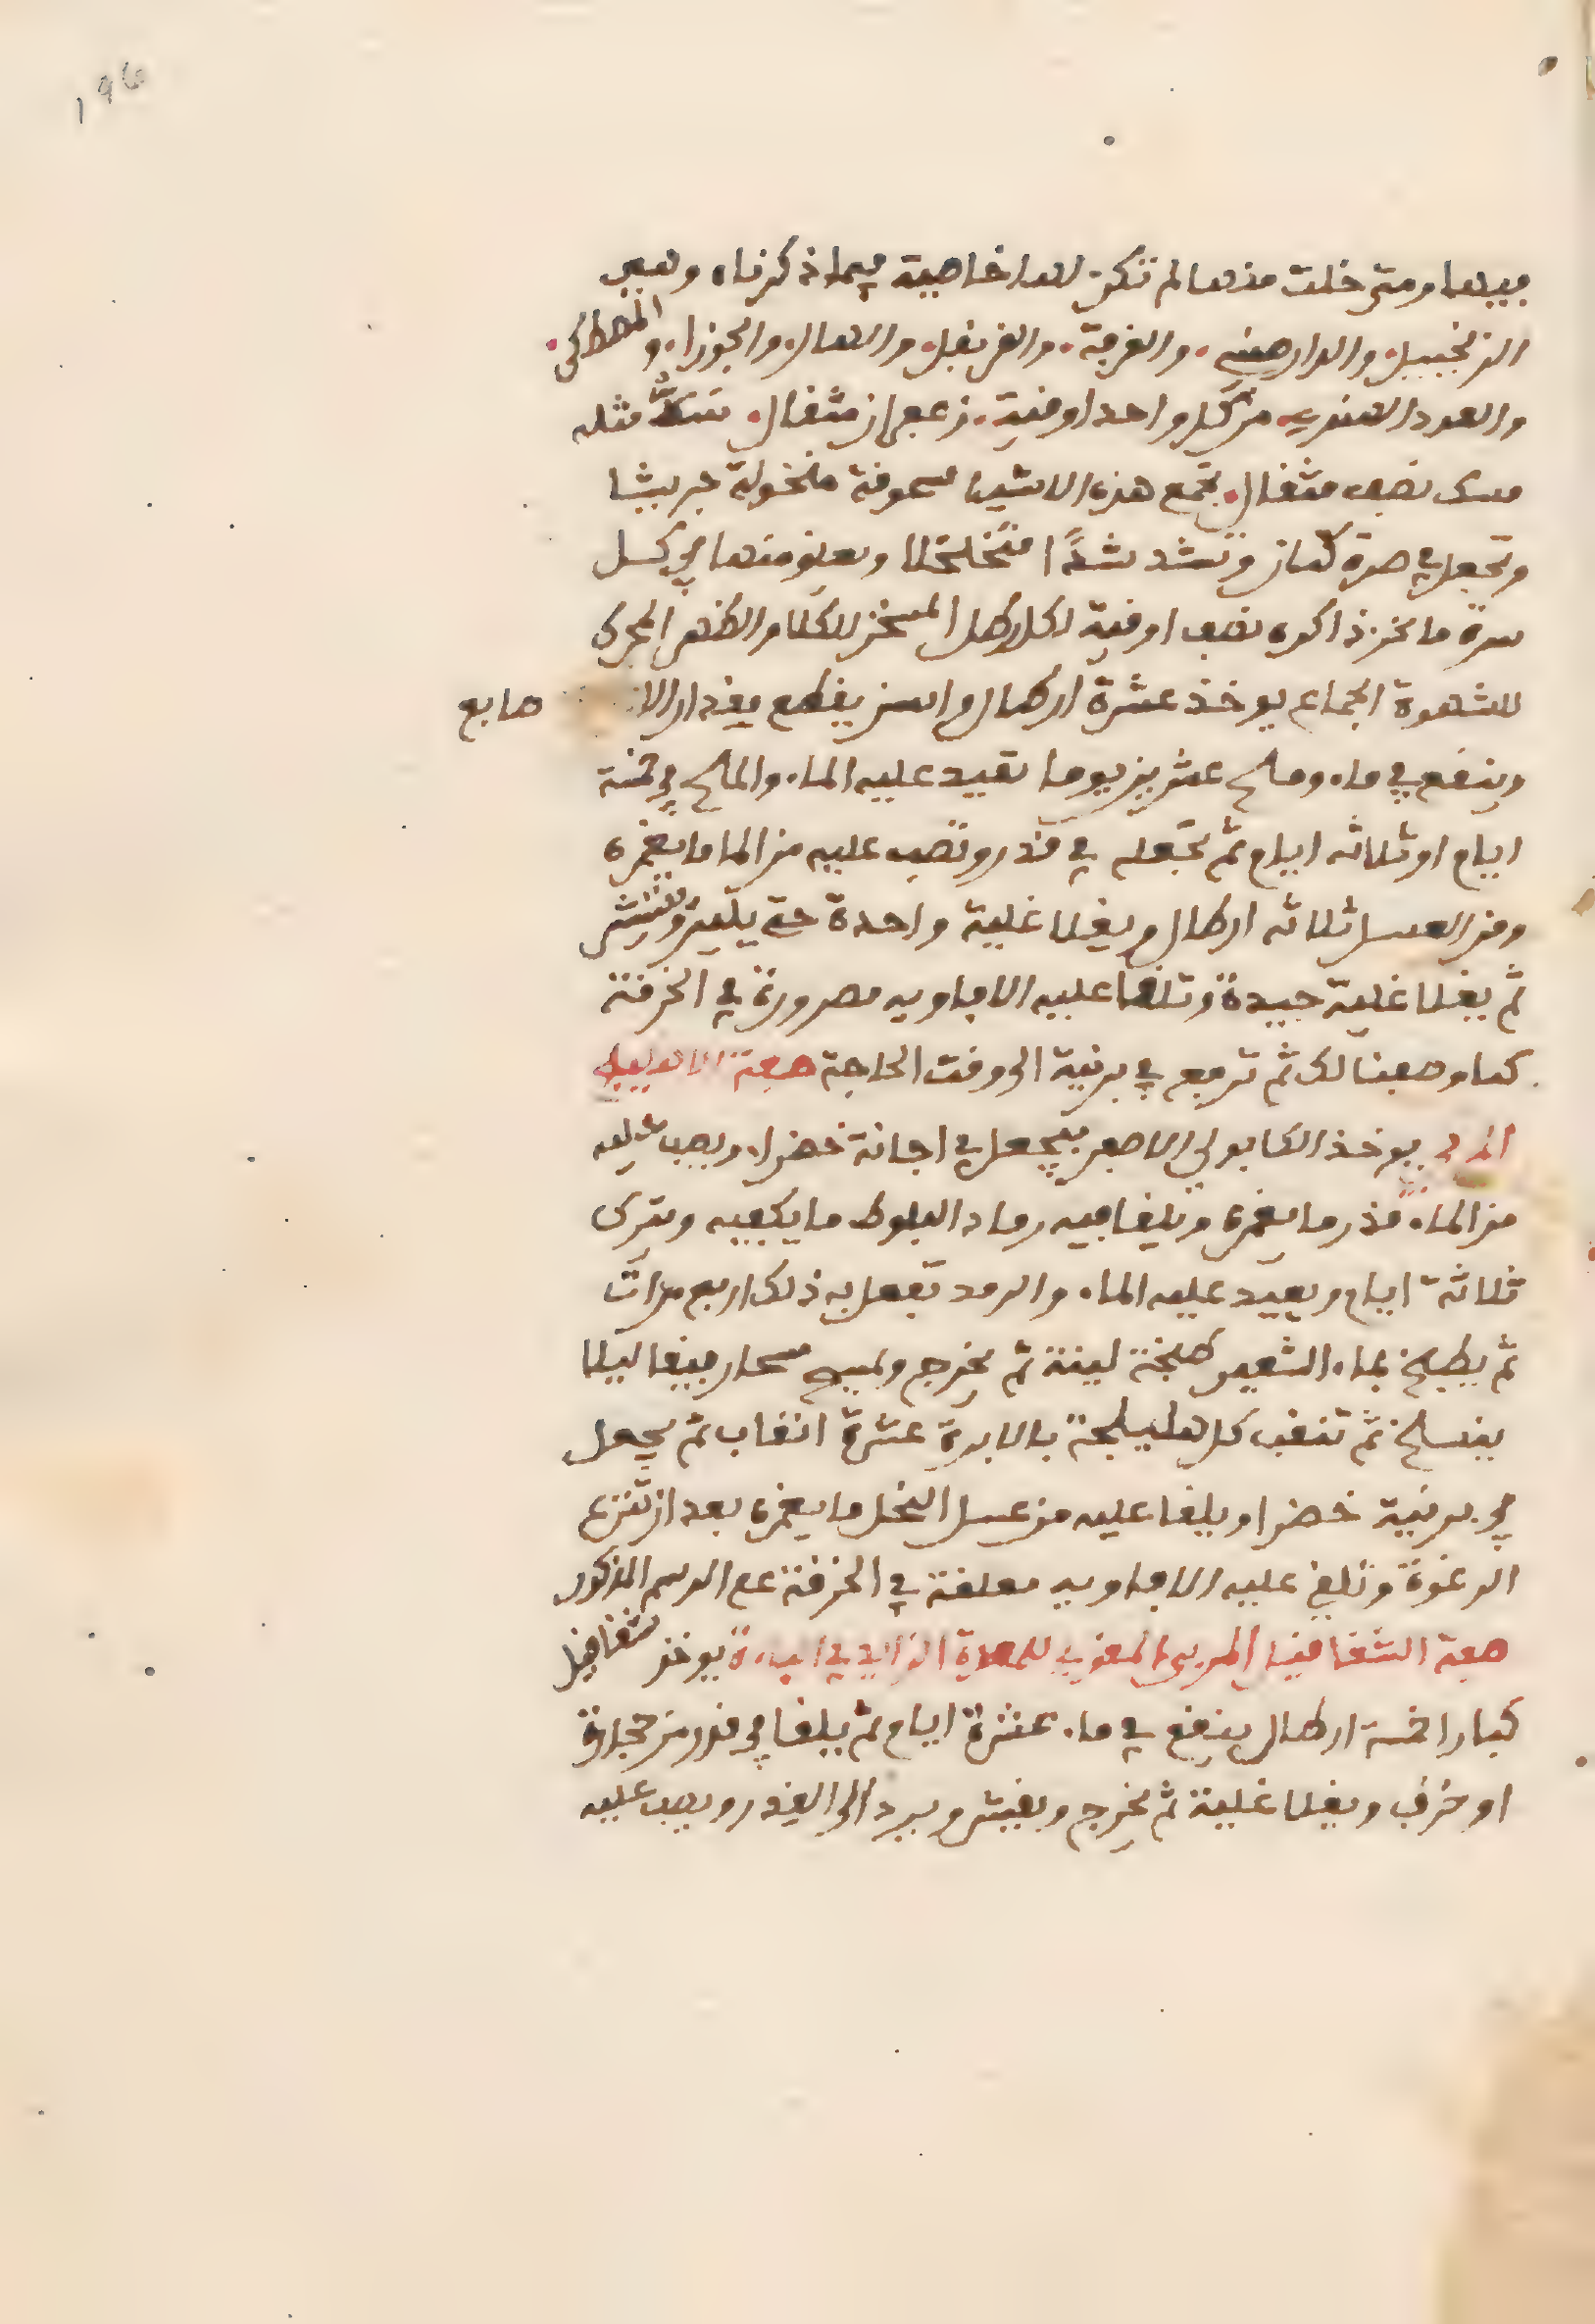 ١٩٤
فيها ومتى خلت منها لم تكن لها خاصية فيما ذكرناه وهي
الزنجبيل والدارصيني والقرفة والقرنفل والهال والجوزا والمصطكى
والعود الهندي من كل واحد اوقية زعفران مثقال سك مثله
مسك نصف مثقال تجمع هذه الاشيا مسحوقة منخولة جريشا
وتجعل في صرة كتان وتشد شدا متخلخلا ويلقى منها في كل
مرة ما نحن ذاكروه نصف اوقية لكل رطل المسخن للكلا والظهر المحرك
للشهوة الجماع يوخذ عشرة ارطال يقطع مقدار الا صابع
وينقع في ماء وملح عشرين يوما تعيد عليه الماء والملح في خمسة
ايام او ثلاثه ايام ثم تجعله في قدر وتصب عليه من الما ما يغمره
ومن العسل ثلاثه ارطال ويغلا غلية واحدة حتى يلين
ثم يغلا غلية جيدة وتلقا عليه الافاويه مصرورة في الخرقة
كما وصفنا لك ثم ترفع في برنية الى وقت الحاجة صفة الاهليلج
المربى يوخذ الكابولي الاصفر فيجعل في اجانة خضرا ويصب عليه
من الماء قدر ما يغمره ويلقا فيه رماد البلوط ما يكفيه ويترك
ثلاثة ايام ويعيد عليه الماء والرمد تفعل به ذلك اربع مرات
ثم يطبخ بماء الشعير طبخة لينة ثم يخرج ويمسح ليلا
ينسلخ ثم تنقب كل هليلجة بالابرة عشرة انقاب ثم يجعل
في برنية خضرا ويلقا عليه من عسل النحل ما يغمره بعد ان تنزع
الرغوة وتلقى عليه الافاويه معلقة في الخرقة على الرسم المذكور
صفة الشقاقل المربى المقوي للمعدة الزايد في الباءة يوخذ شقاقل
كبارا خمسة ارطال ينقع في ماء عشرة ايام ثم يلقا في قدر من حجارة
او خزف ويغلا غلية ثم يخرج ويقشر ويرد الى القدر ويصب عليه